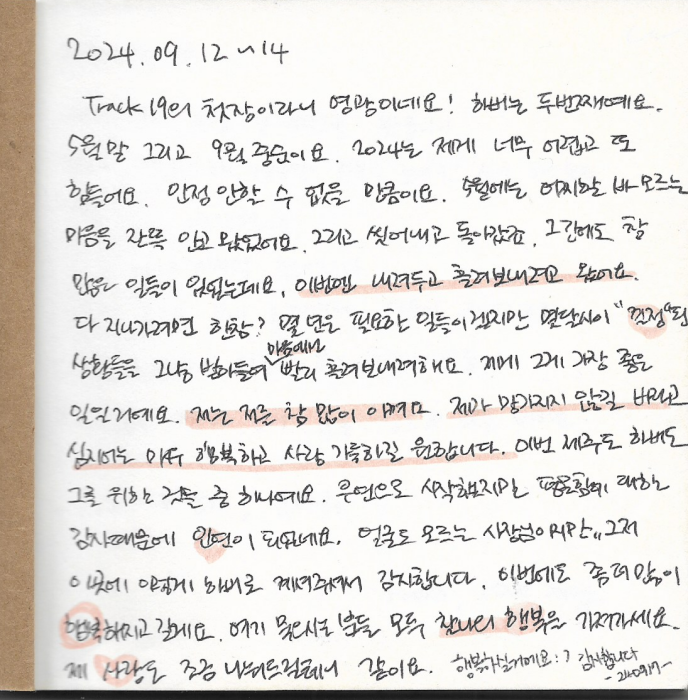 2024. 09. 12 ~ 14
Track 19의 첫장이라니 영광이네요! 하버는 두번째예요.
5월 말 그리고 9월 중순이요. 2024는 제게 너무 어렵고 또
힘들어요. 안정 안할 수 없을 만큼이요. 5월에는 어찌할 바 모르는
마음을 잔뜩 안고 왔었어요. 그리고 씻어내고 돌아갔죠. 그간에도 참
많은 일들이 있었는데요, 이번엔 내려두고 흘려보내려고 왔어요.
다 지나가려면 한참? 몇 년은 필요한 일들이겠지만 몇달사이 "걱정"된
상황들을 그냥 받아들여 마음에서 빨리 흘려보내려해요. 제게 그게 가장 좋은
일일거예요. 저는 저를 참 많이 아껴요. 제가 망가지지 않길 바라고
심지어는 아주 행복하고 사랑 가득하길 원합니다. 이번 제주도 하버도
그를 위한 것들 중 하나예요. 우연으로 시작했지만 평온함에 대한
감사때문에 인연이 되었네요. 얼굴도 모르는 사장님이지만,, 그저
이곳에 이렇게 하버로 계셔주셔서 감사합니다. 이번에도 좀 더 많이
행복해지고 갈게요. 여기 묵으시는 분들 모두 참나의 행복을 가져가세요.
제 사랑도 조금 나눠드릴테니 같이요. 행복하실거예요 : ) 감사합니다
- 240917 -